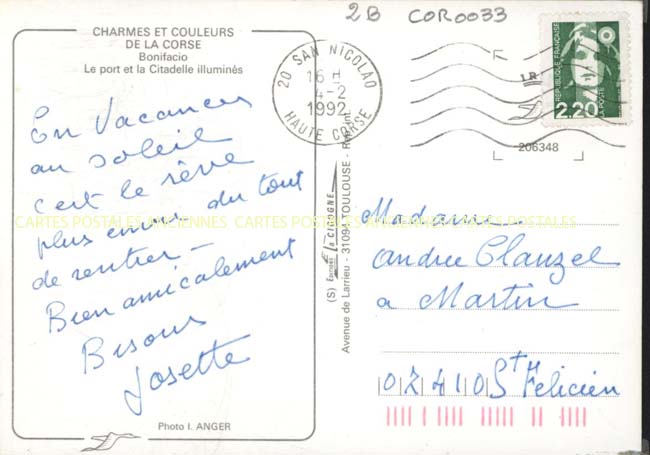 2B COR0033
CHARMES ET COULEURS
DE LA CORSE
Bonifacio
Le port et la Citadelle illuminés
En Vacances
au soleil
c'est le rêve
plus envie du tout
de rentrer -
Bien amicalement
Bisous
Josette
Photo I. ANGER
20 SAN NICOLAO
16 H
4-2
1992
HAUTE CORSE
REPUBLIQUE FRANÇAISE
LA POSTE
2,20
206348
(S) Editions La CIGOGNE
Avenue de Larrieu - 31094 TOULOUSE -
Madame
Andree Clauzel
a Martin
07410 St Felicien
CARTES POSTALES ANCIENNES CARTES POSTALES ANCIENNES CARTES POSTALES